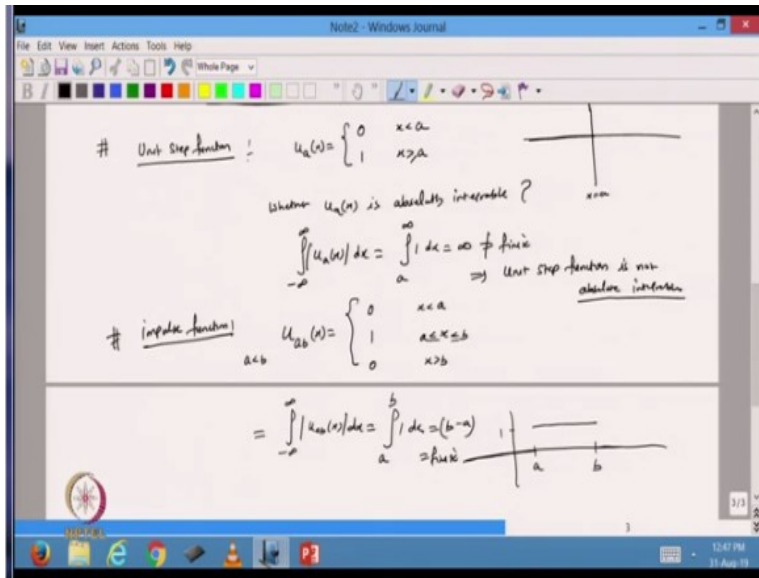 Note2 - Windows Journal
File Edit View Insert Actions Tools Help
Whole Page
B I
# Unit step function : u_a(x) = { 0 x<a
1 x≥a
x=a
Whether u_a(x) is absolutely integrable ?
∫_{-∞}^{∞} |u_a(x)| dx = ∫_a^∞ 1 dx = ∞ ≠ finite
⇒ Unit step function is not
absolute integrable
# impulse function | u_ab(x) = { 0 x<a
a<b
1 a≤x≤b
0 x>b
= ∫_{-∞}^{∞} |u_ab(x)| dx = ∫_a^b 1 dx = (b-a)
= finite
1
a b
3/3
3
NPTEL
12:47 PM
31-Aug-19